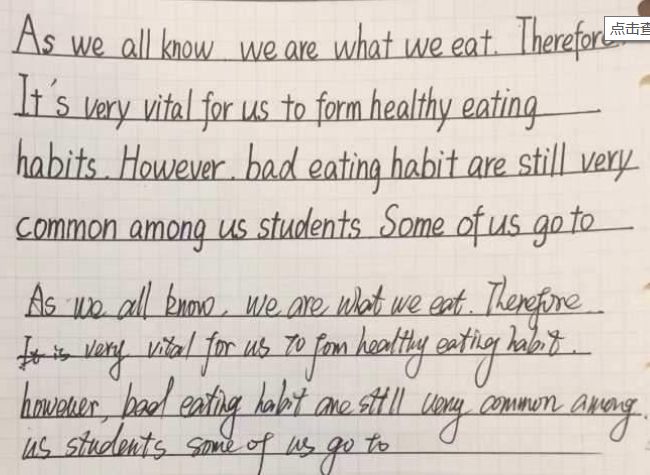 As we all know we are what we eat. Therefore
点击查
It's very vital for us to form healthy eating
habits. However. bad eating habit are still very
common among us students Some of us go to
As we all know, we are what we eat. Therefore
It is very vital for us to fom healthy eating habit.
however, bad eating habit are still very common among.
us students some of us go to